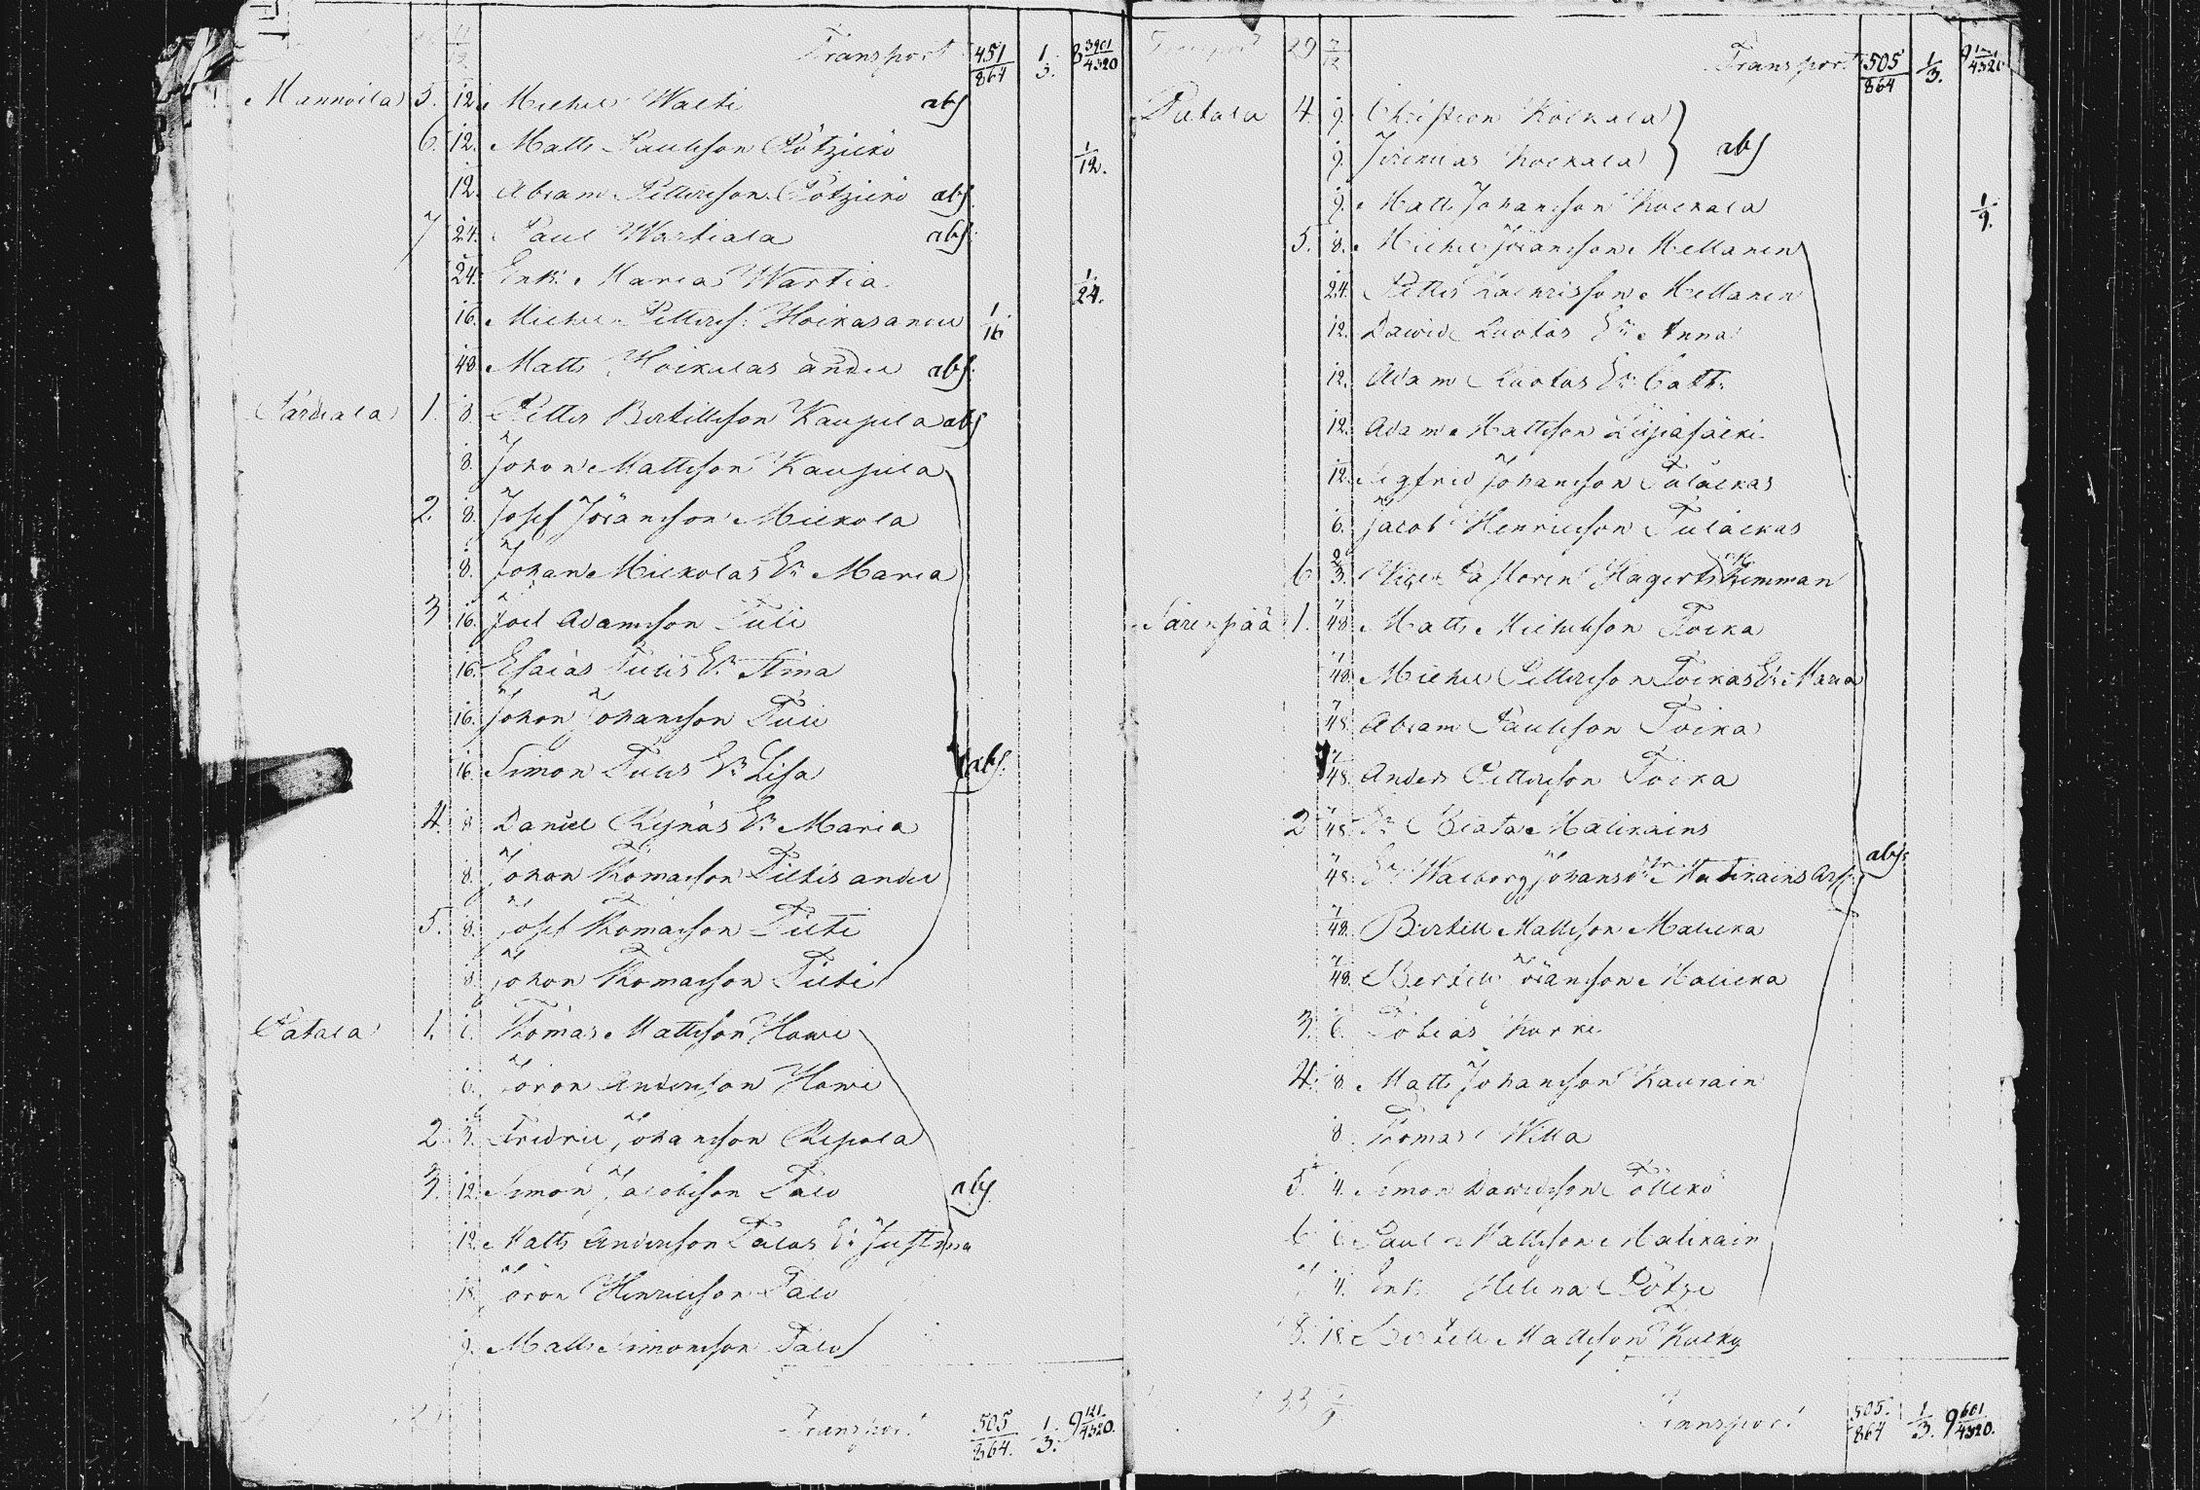 Transport 451/864 1/3. 8 3901/4320
Mannoila 5. 12. Michel Walti abs
6. 12. Matts Paulsson Pötzicko 1/12.
12. Abram Pettersson Pötzicko abs.
7 24. Paul Wartiala abs.
24. Enk: Maria Wartia 1/24.
16. Michel Petterss: Hoikas andel 1/16
48 Matts Hoikalas andel abs.
1. 8. Petter Bertillsson Kaupila abs
8. Johan Mattsson Kaupila
2. 8. Josef Jöransson Mickola
8. Johan Mickolas Ea Maria
3 16. Joel Adamsson Tuli
16. Esaias Tulis Ea Stina
16. Johan Johansson Tuli
16. Simon Tulis Ea Lisa abs:
4. 8 Daniel Rynäs Ea Maria
8. Johan Thomasson Piltis andel
5. 8. Josef Thomasson Pilti
8 Johan Thomasson Pilti
Patala 1. 6. Thomas Mattsson Howi
6. Jöran Andersson Howi
2 3. Fredric Johansson Repola
3. 12. Simon Jacobsson Talo abs
12. Matts Andersson Talos Ea Justina
18. Jöran Henricsson Talo
9. Matts Simonsson Talo
Transport 505/864. 1/3. 9 121/4320.
Transport 29 7/12 Transport 505/864 1/3. 9 121/4320
Patala 4. 9. Christian Koikala
9. Jeremias Koikala abs
9. Matts Johansson Koikala 1/9.
5. 8. Michel Jöransson Mellanen
24. Petter Hinrisson Mellanen
12. Dawid Luotos Ea Anna
12. Adam Luotos Ea Cath:
12. Adam Mattsson
12. Sigfrid Johansson Pulackas
6. Jacob Henricsson Pulackas
6 2/3. Vice Pastoren Hagert Kimman
Särkipää 1. 7/48 Matts Michelsson Toika
7/48. Michel Pettersson Toikas Ea Maria
7/48. Abram Paulsson Toika
7/48. Anders Pettersson Toika
2 7/48. Ea Beata Matikains
7/48. Ea Walborg Johansdr Matikains Arf: abs:
7/48. Bertill Mattsson Maticka
7/48. Bertill Jöransson Maticka
3. 6. Tobias Kurki
4. 8. Matts Johansson Kaurain
8. Thomas Willa
5. 4. Simon Dawidsson Pöllko
6 6. Paul Mattsson Matikain
7 4. Enk: Helena Pötzi
8. 18. Bertill Mattsson Kulky
33 Transport 505/864 1/3. 9 601/4320.